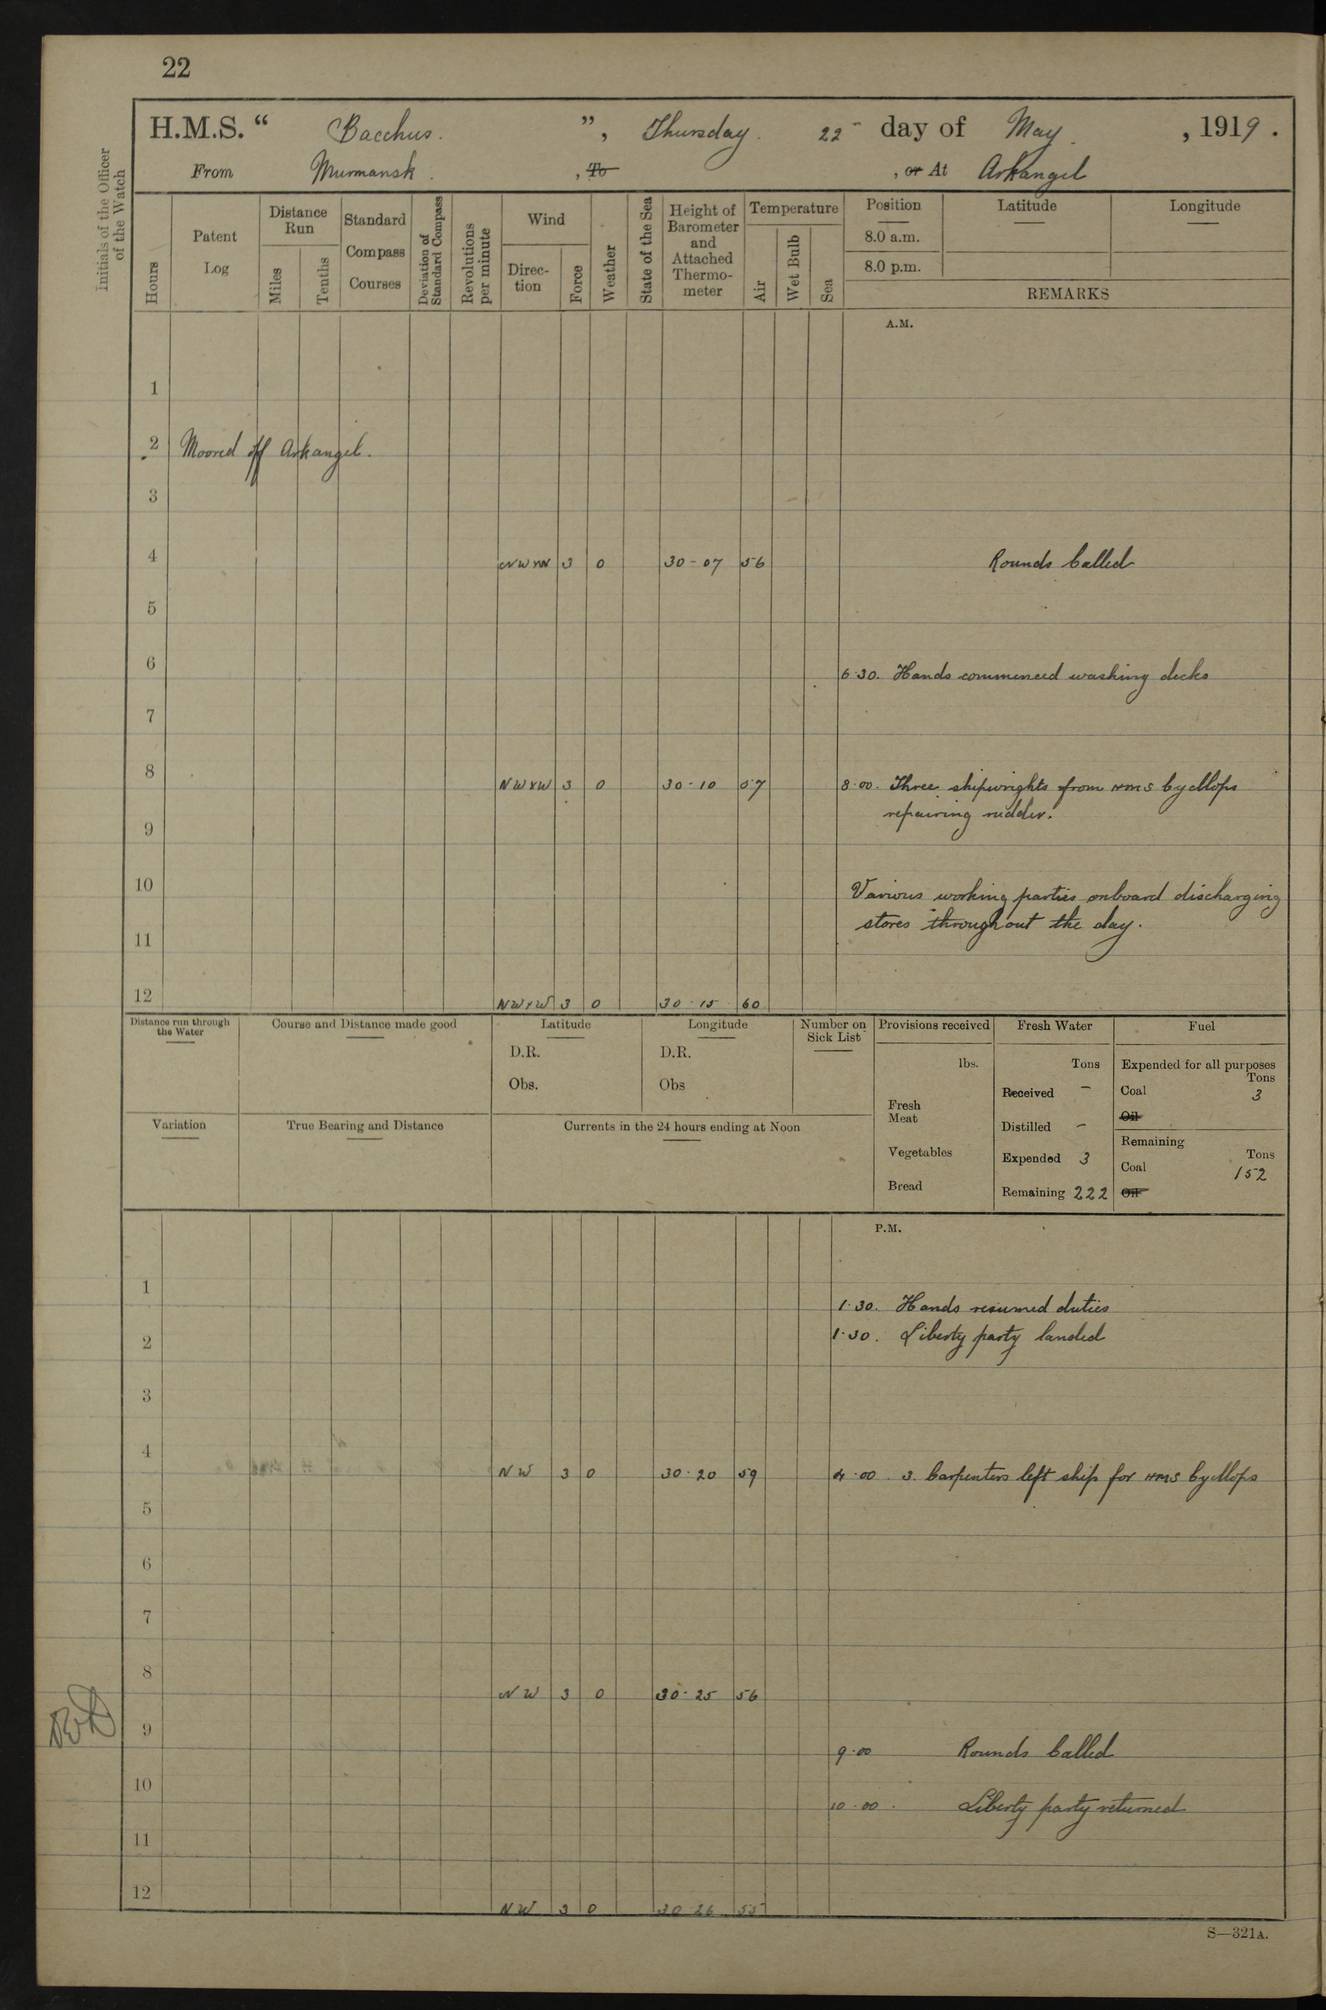 22
H.M.S. “ Bacchus. ”, Thursday. 22 - day of May , 1919.
From Murmansk. , To , or At Arkangel
Initials of the Officer of the Watch
Hours
Patent Log
Distance Run
Miles
Tenths
Standard Compass Courses
Deviation of Standard Compass
Revolutions per minute
Wind
Direc-tion
Force
Weather
State of the Sea
Height of Barometer and Attached Thermo-meter
Temperature
Air
Wet Bulb
Sea
Position
8.0 a.m.
8.0 p.m.
Latitude
Longitude
REMARKS
A.M.
1
2 Moored off Arkangel.
3
4 NWxN 3 0 30-07 56 Rounds Called
5
6 6.30. Hands commenced washing decks
7
8 NWxW 3 0 30-10 57 8.00. Three shipwrights from HMS Cyclops
repairing rudder.
9
10 Various working parties onboard discharging
stores throughout the day.
11
12 NWxW 3 0 30.15 60
Distance run through the Water
Course and Distance made good
Latitude
D.R.
Obs.
Longitude
D.R.
Obs
Number on Sick List
Provisions received
lbs.
Fresh Meat
Vegetables
Bread
Fresh Water
Tons
Received -
Distilled -
Expended 3
Remaining 222
Fuel
Expended for all purposes
Tons
Coal 3
Oil
Remaining
Tons
Coal 152
Oil
Variation
True Bearing and Distance
Currents in the 24 hours ending at Noon
P.M.
1
1.30. Hands resumed duties
2 1.30. Liberty party landed
3
4 NW 3 0 30.20 59 4.00. 3. Carpenters left ship for HMS Cyclops
5
6
7
8 NW 3 0 30.25 56
9 9.00 Rounds Called
10 10.00. Liberty party returned
11
12 NW 3 0 30 26 55
S—321A.